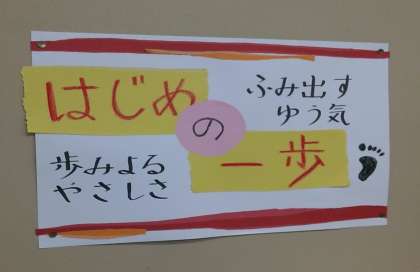 はじめ
の
一歩
ふみ出す
ゆう気
歩みよる
やさしさ